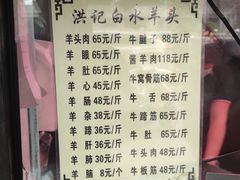 洪记白水羊头
羊头肉65元/斤 牛腱子88元/斤
羊眼65元/斤 酱羊肉118元/斤
羊肚65元/斤 牛窝骨筋68元/斤
羊心45元/斤 牛舌68元/斤
羊肠48元/斤 牛杂48元/斤
羊杂38元/斤 牛蹄筋48元/斤
羊蹄35元/斤 牛肚65元/斤
羊肝36元/斤 牛头肉48元/斤
羊肺40元/斤 牛板筋48元/斤
羊脑8元/个